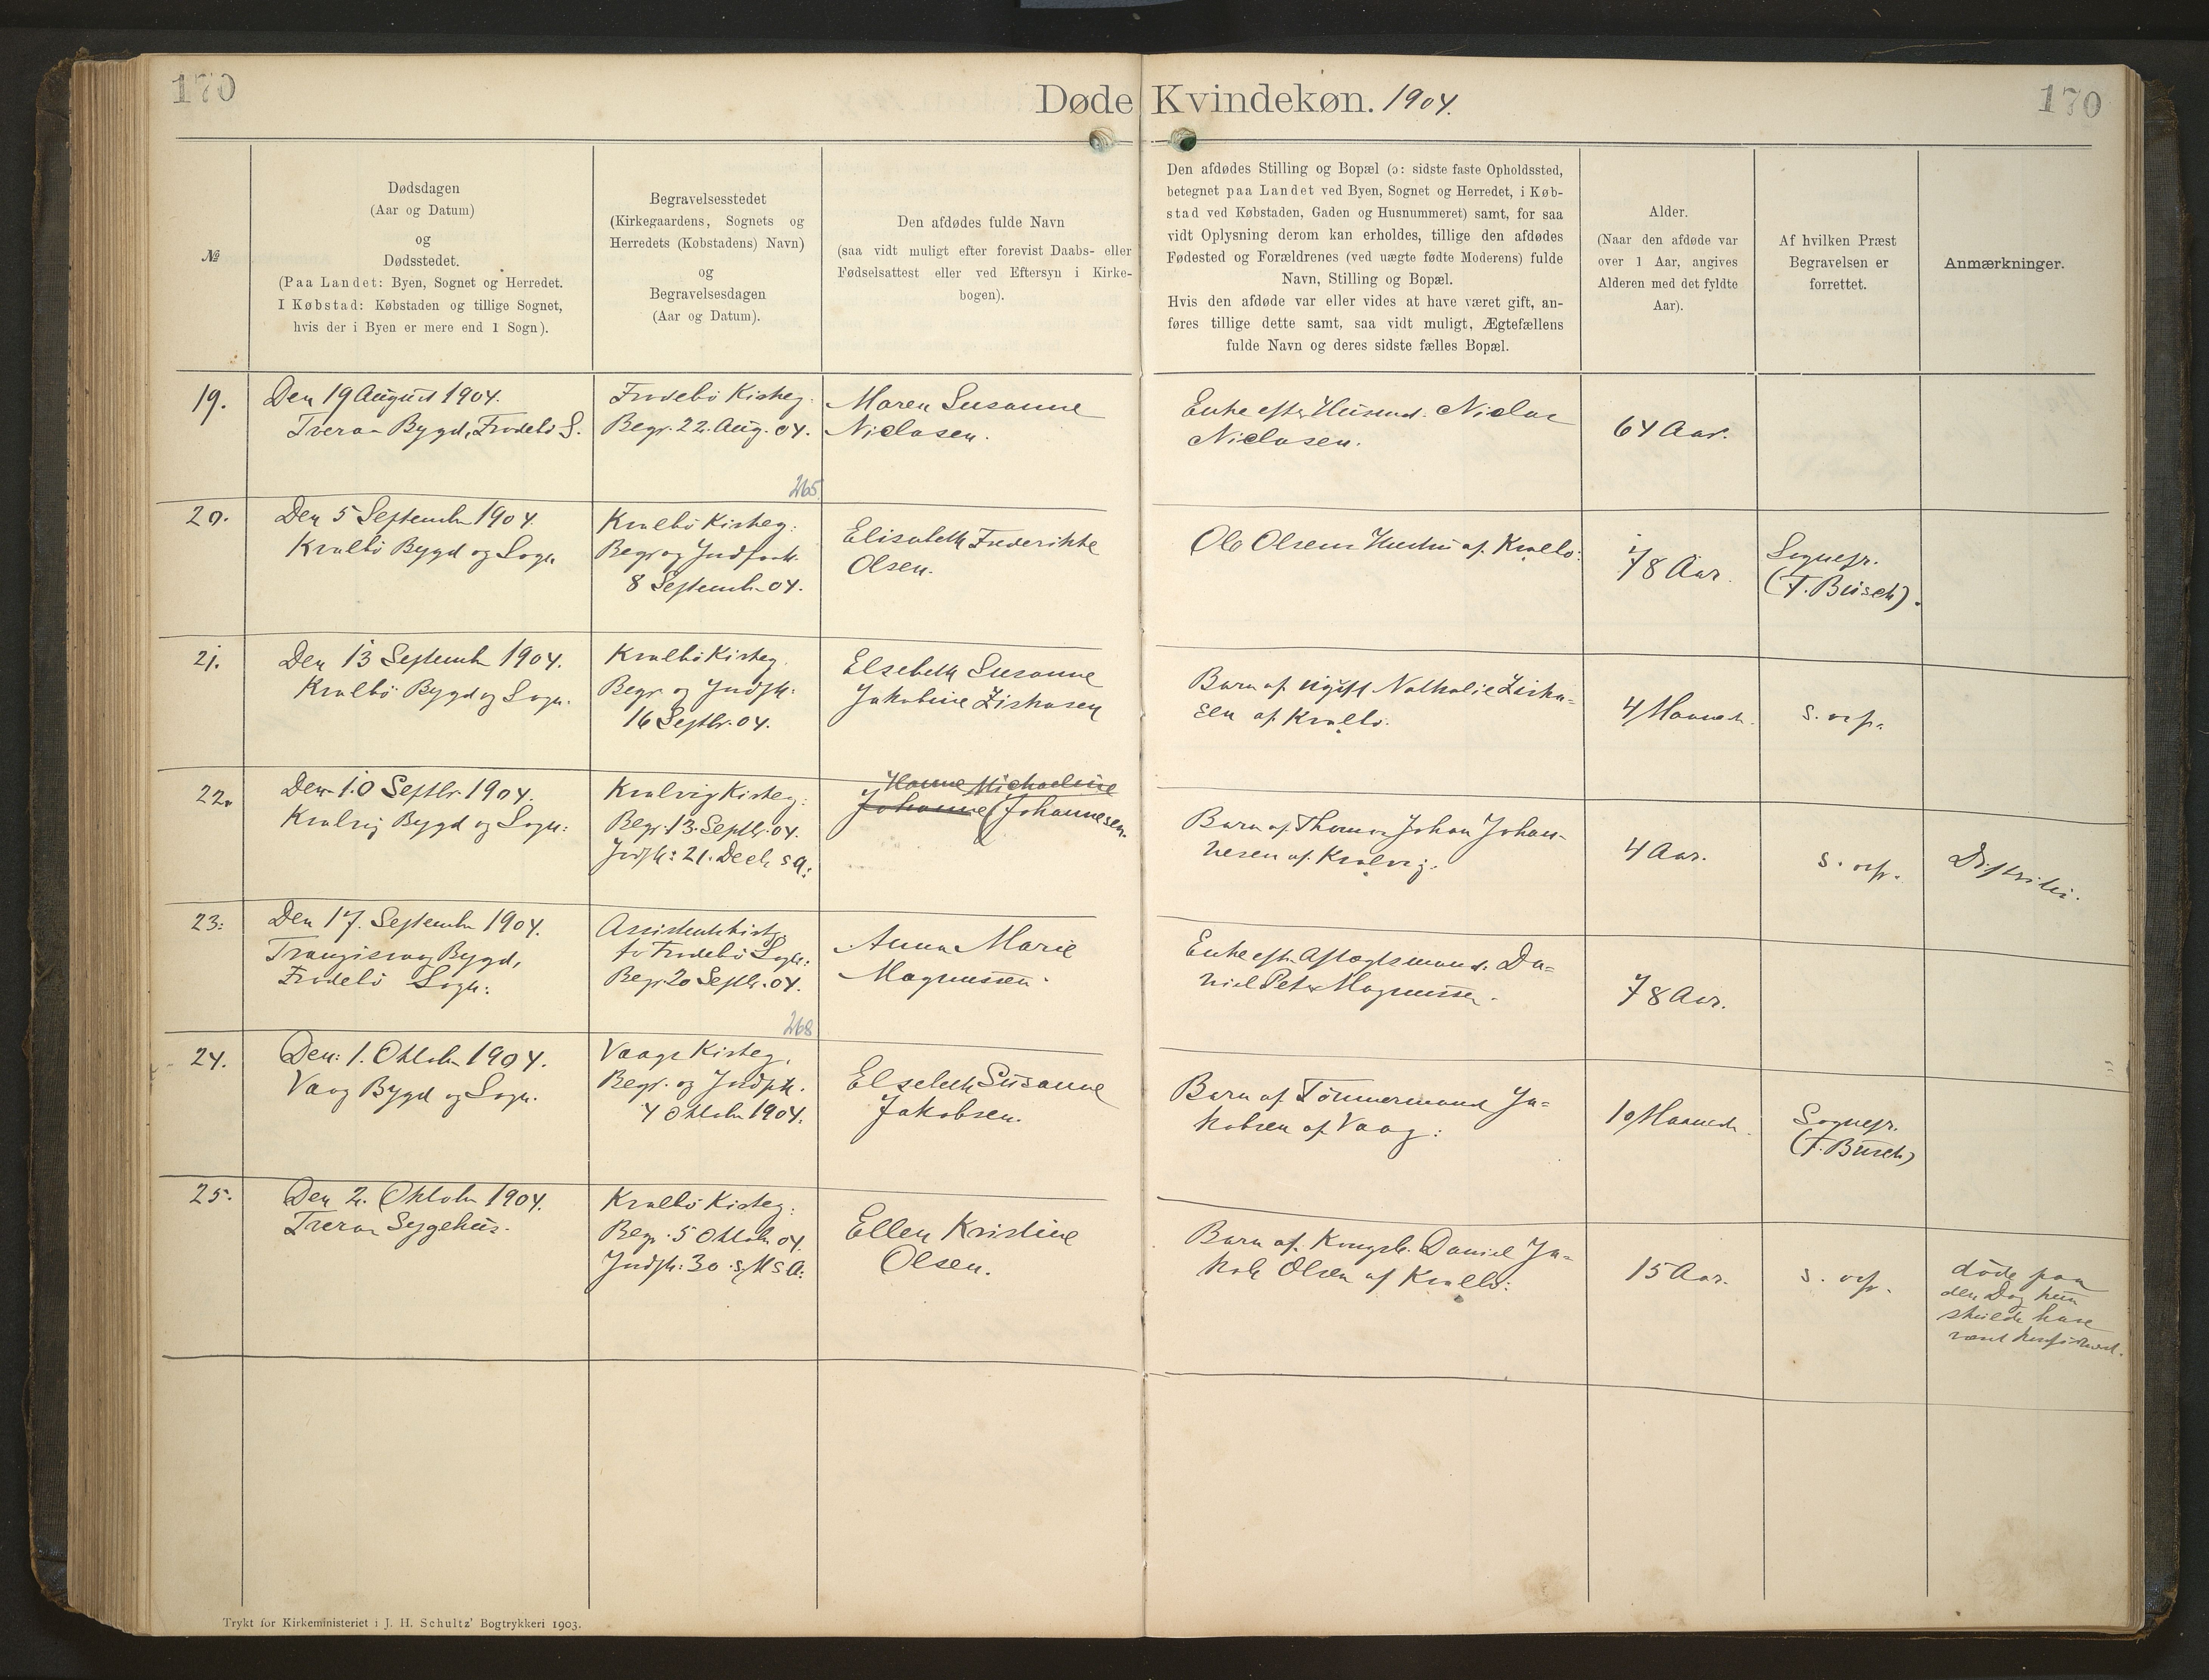 170
Døde Kvindekøn. 1904.
170
№
Dødsdagen
(Aar og Datum)
og
Dødsstedet.
(Paa Landet: Byen, Sognet og Herredet.
I Købstad: Købstaden og tillige Sognet,
hvis der i Byen er mere end 1 Sogn).
Begravelsesstedet
(Kirkegaardens, Sognets og
Herredets (Købstadens) Navn)
og
Begravelsesdagen
(Aar og Datum).
Den afdødes fulde Navn
(saa vidt muligt efter forevist Daabs- eller
Fødselsattest eller ved Eftersyn i Kirke-
bogen).
Den afdødes Stilling og Bopæl (ɔ: sidste faste Opholdssted,
betegnet paa Landet ved Byen, Sognet og Herredet, i Køb-
stad ved Købstaden, Gaden og Husnummeret) samt, for saa
vidt Oplysning derom kan erholdes, tillige den afdødes
Fødested og Forældrenes (ved uægte fødte Moderens) fulde
Navn, Stilling og Bopæl.
Hvis den afdøde var eller vides at have været gift, an-
føres tillige dette samt, saa vidt muligt, Ægtefællens
fulde Navn og deres sidste fælles Bopæl.
Alder.
(Naar den afdøde var
over 1 Aar, angives
Alderen med det fyldte
Aar).
Af hvilken Præst
Begravelsen er
forrettet.
Anmærkninger.
19.
Den 19 August 1904.
Bygd, Frodebö S.
Frodebö Kirkeg.
Begr. 22. Aug. 04.
Maren Susanne
Niclasen.
Enke efter Niclas
Niclasen.
64 Aar.
265
20.
Den 5 September 1904.
Kvalbö Bygd og Sogn.
Kvalbö Kirkeg:
Begr og Jordfæst.
8 Septemb. 04.
Elisabeth Frederikke
Olsen.
Ole Olsens Hustru af Kvalbö:
78 Aar.
Sognepr.
(F. Busch).
21.
Den 13 September 1904.
Kvalbö Bygd og Sogn.
Kvalbö Kirkeg.
Begr og Jordfst:
16 Septbr. 04.
Elsebeth Susanne
Jakobine Ziskasen
Barn af ugift Nathalie Ziska-
sen af Kvalbö.
4 Maaned.
s. ovfr.
22.
Den 10 Septbr 1904.
Kvalvig Bygd og Sogn:
Kvalvig Kirkeg:
Begr. 13. Septbr. 04.
Jordfst: 21. Decb s A:
Hanne Michaeline
Johanne (Johannesen.
Barn af Thomas Johan Johan-
nesen af Kvalvig.
4 Aar.
s. ovfr.
Difteritis.
23:
Den 17. September 1904.
Trangisvaag Bygd,
Frodebö Sogn:
Assistentskirkg.
for Frodebö Sogn:
Begr 20 Septbr. 04.
Anna Marie
Magnussen.
Enke eft. Aftægtsmand. Da-
niel Peter Magnussen.
78 Aar.
268
24.
Den: 1. Oktober 1904.
Vaag Bygd og Sogn.
Vaags Kirkeg.
Begr. og Jordfst.
4 Oktober 1904.
Elsebeth Susanne
Jakobsen.
Barn af Tömmermand Ja-
kobsen af Vaag:
10 Maaned.
Sognepr.
(F. Busch)
25.
Den 2. Oktober 1904.
Sygehus.
Kvalbö Kirkeg:
Begr. 5 Oktober 04.
Jordfst: 30. s M s A:
Ellen Kristine
Olsen.
Barn af Kongsb. Daniel Ja-
kob Olsen af Kvalbö:
15 Aar.
s. ovfr.
döde paa
den Dag hun
skulde have
været konfirmeret.
Trykt for Kirkeministeriet i J. H. Schultz' Bogtrykkeri 1903.